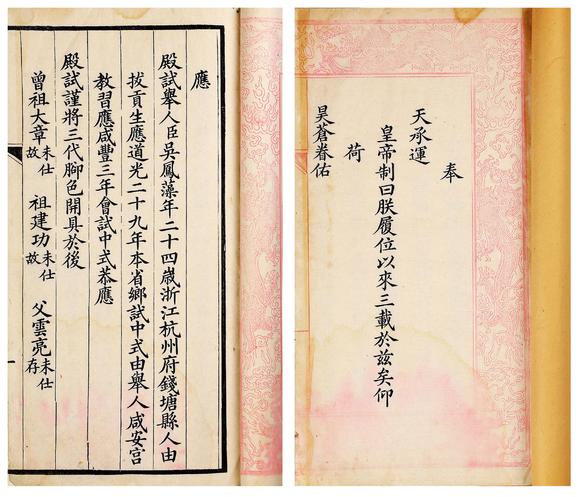 奉
天承運
皇帝制曰朕履位以來三載於兹矣仰
荷
昊蒼眷佑
應
殿試舉人臣吳鳳藻年二十四歲浙江杭州府錢塘縣人由
拔貢生應道光二十九年本省鄉試中式由舉人咸安宮
教習應咸豐三年會試中式恭應
殿試謹將三代腳色開具於後
曾祖大章未仕故 祖建功未仕故 父雲亮未仕存